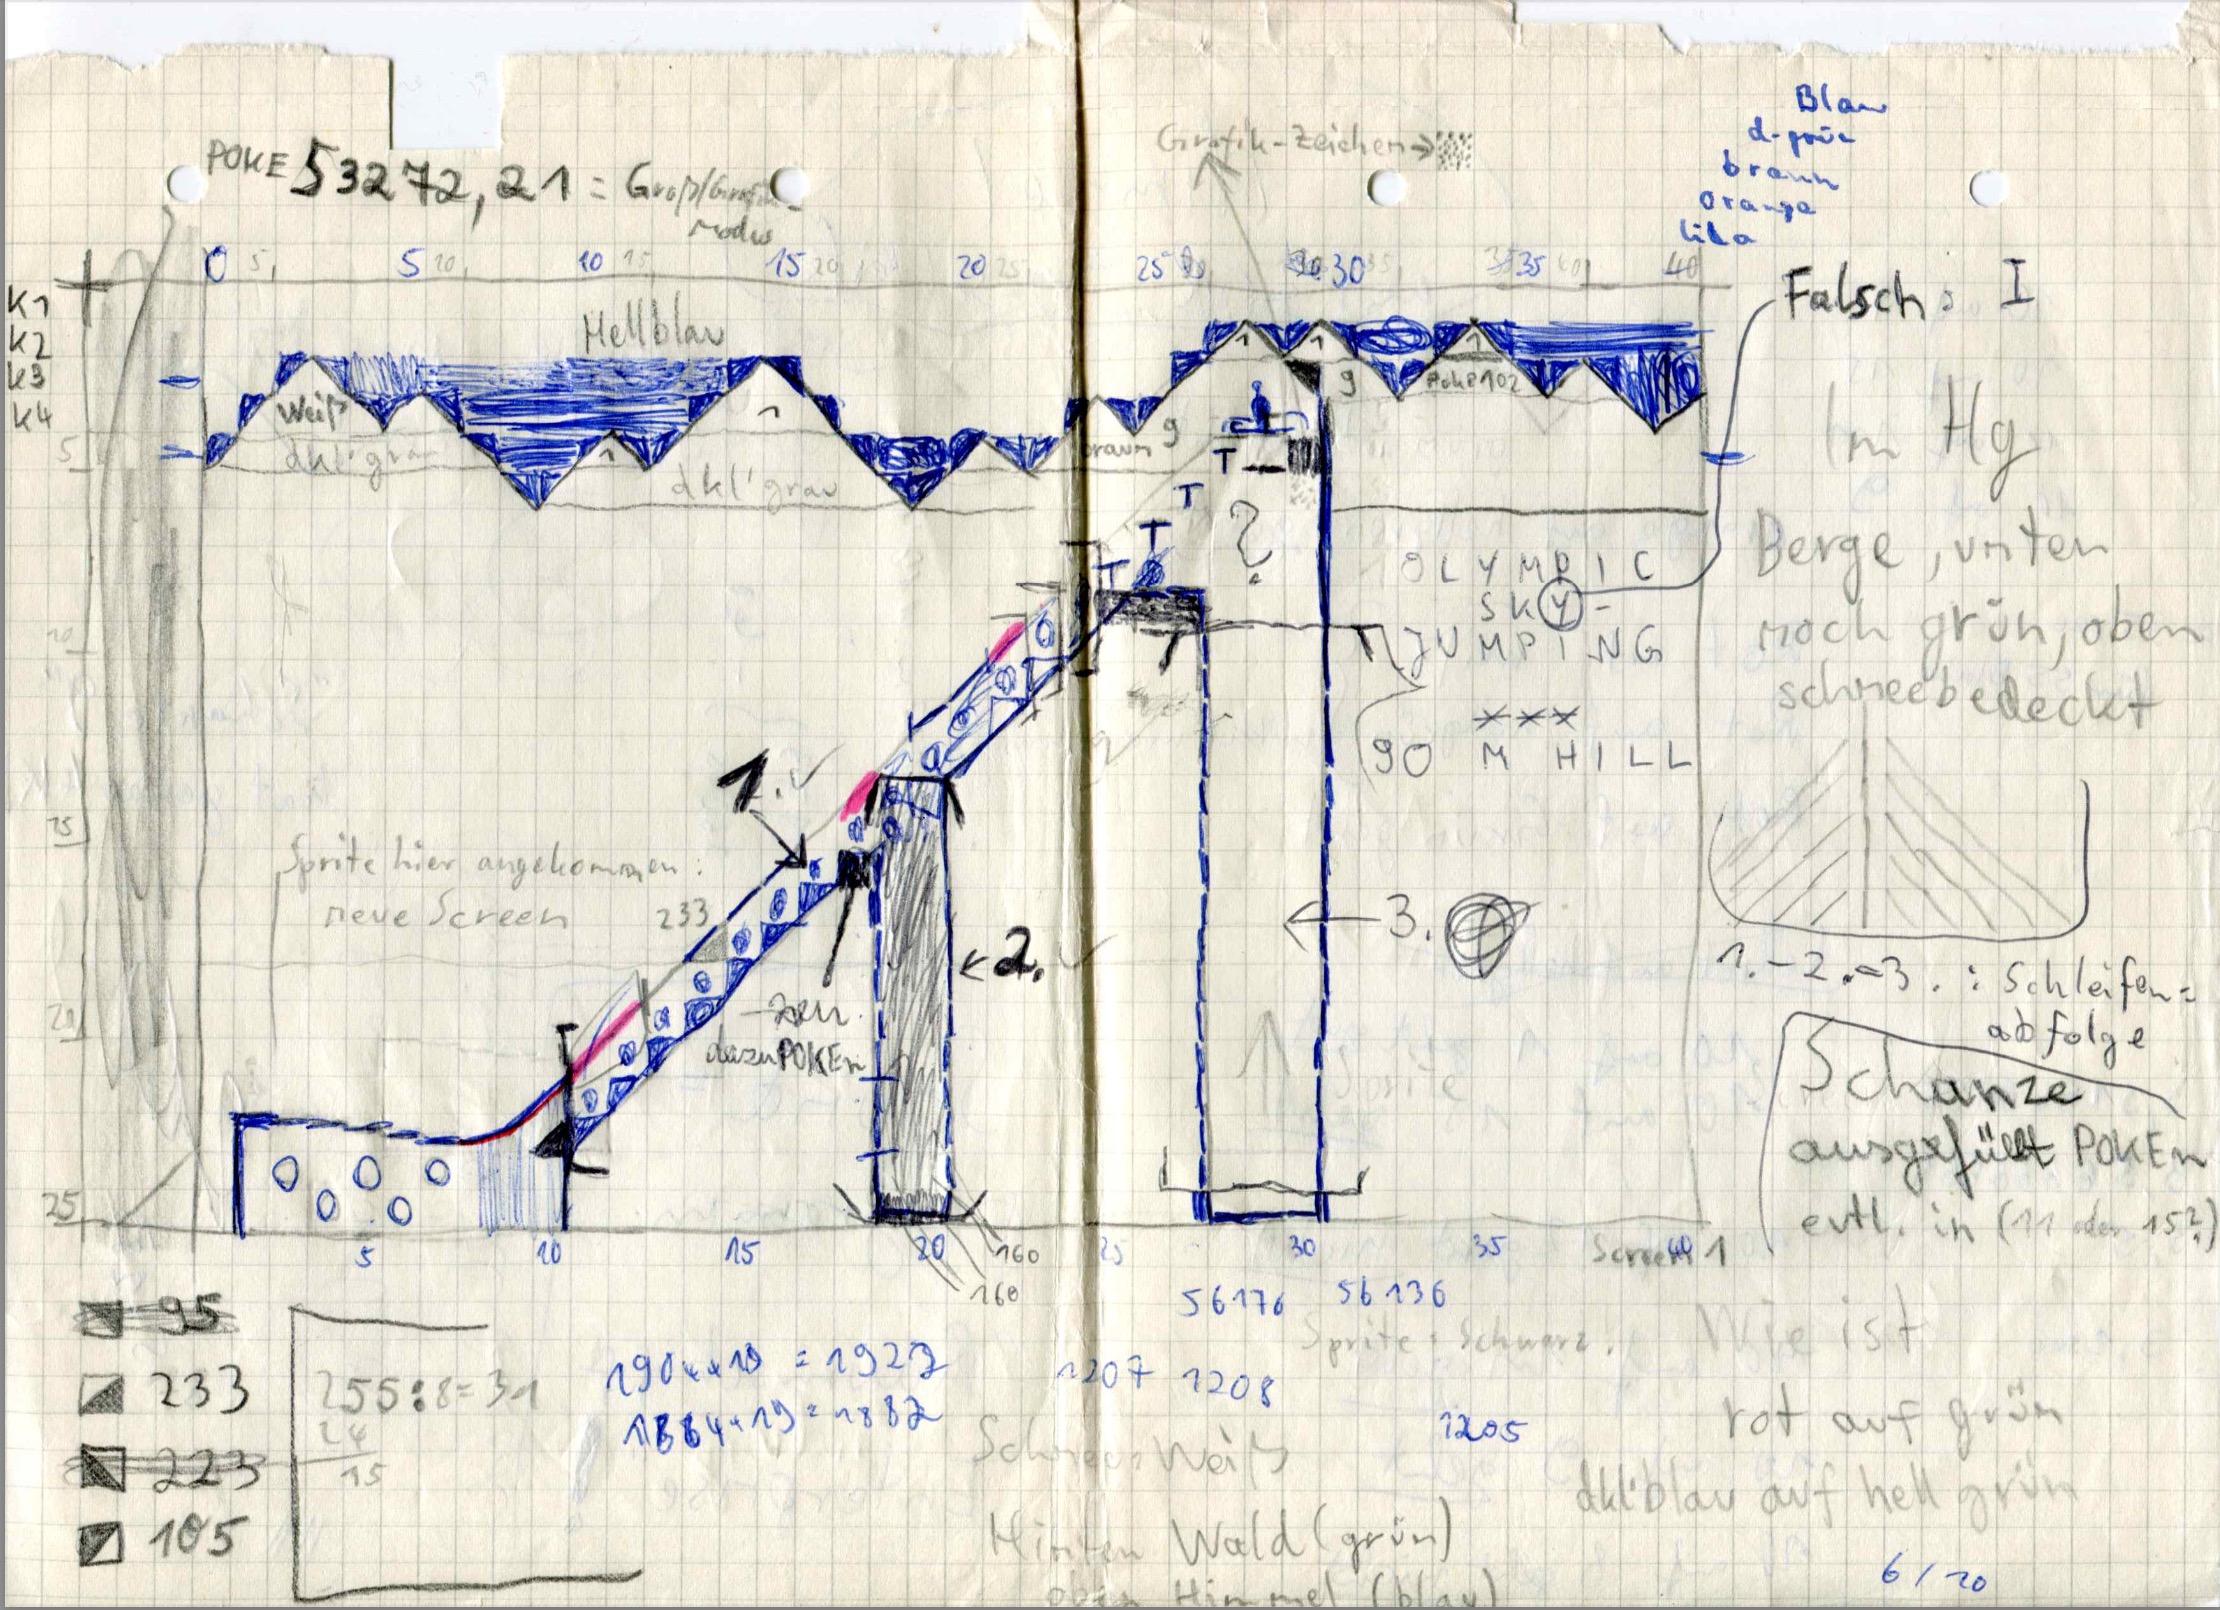 Blau
d-grün
braun
Orange
lila
Grafik-Zeichen→
POKE 53272,21 = Groß/Grafik-
Modus
0 5 5 10 10 15 15 20 20 25 25 30 35 35 40 40
K1
K2
K3
K4
5
10
15
20
25
Hellblau
Weiß
1
1
dkl'grau
dkl'grau
braun
9
1
1
1
9
POKE 102
T
T
T
T
?
Falsch: I
Im Hg
Berge, unten
noch grün, oben
schneebedeckt
OLYMPIC
SKY-
JUMPING
***
90 M HILL
1.
Sprite hier angekommen:
neue Screen
233
2.
3.
dazuPOKEn
Sprite
1.-2.-3. : Schleifen=
abfolge
Schanze
ausgefüllt POKEn
evtl. in (11 oder 15?)
5 10 15 20 25 30 35 40
Screen 1
160
160
56176 56136
Sprite: Schwarz!
95
233
223
105
255:8=31
24
15
= 1922
= 1882
1207 1208
1205
Schnee: Weiß
Hinten Wald (grün)
oben Himmel (blau)
Wie ist
rot auf grün
dkl'blau auf hell grün
6/20